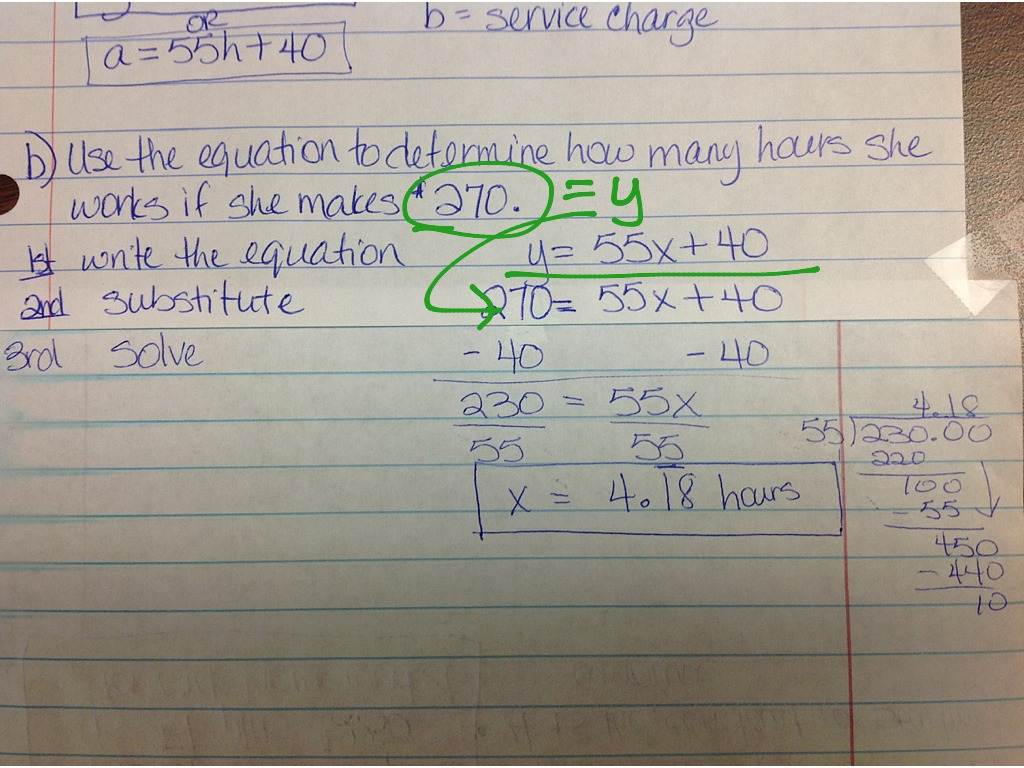 OR
b = service charge
a = 55h + 40
b) Use the equation to determine how many hours she
works if she makes $270. = y
1st write the equation y = 55x + 40
2nd substitute 270 = 55x + 40
3rd solve - 40 - 40
230 = 55x
55 55
x = 4.1̅8̅ hours
4.18
55)230.00
220
100
- 55
450
- 440
10